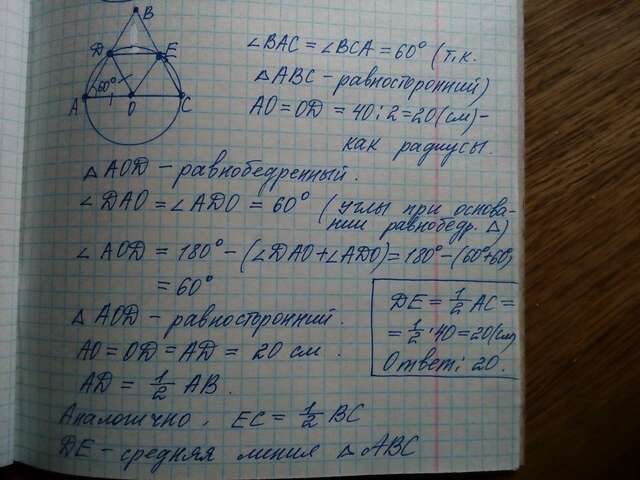 B
D E
60°
A O C
∠BAC = ∠BCA = 60° (т.к.
△ABC - равносторонний)
AO = OD = 40 : 2 = 20 (см) -
как радиусы.
△AOD - равнобедренный.
∠DAO = ∠ADO = 60° (углы при основа-
нии равнобедр. △)
∠AOD = 180° - (∠DAO + ∠ADO) = 180° - (60° + 60°)
= 60°
△AOD - равносторонний.
AO = OD = AD = 20 см.
AD = 1/2 AB.
Аналогично, EC = 1/2 BC
DE - средняя линия △ABC
DE = 1/2 AC =
= 1/2 · 40 = 20 (см)
Ответ: 20.